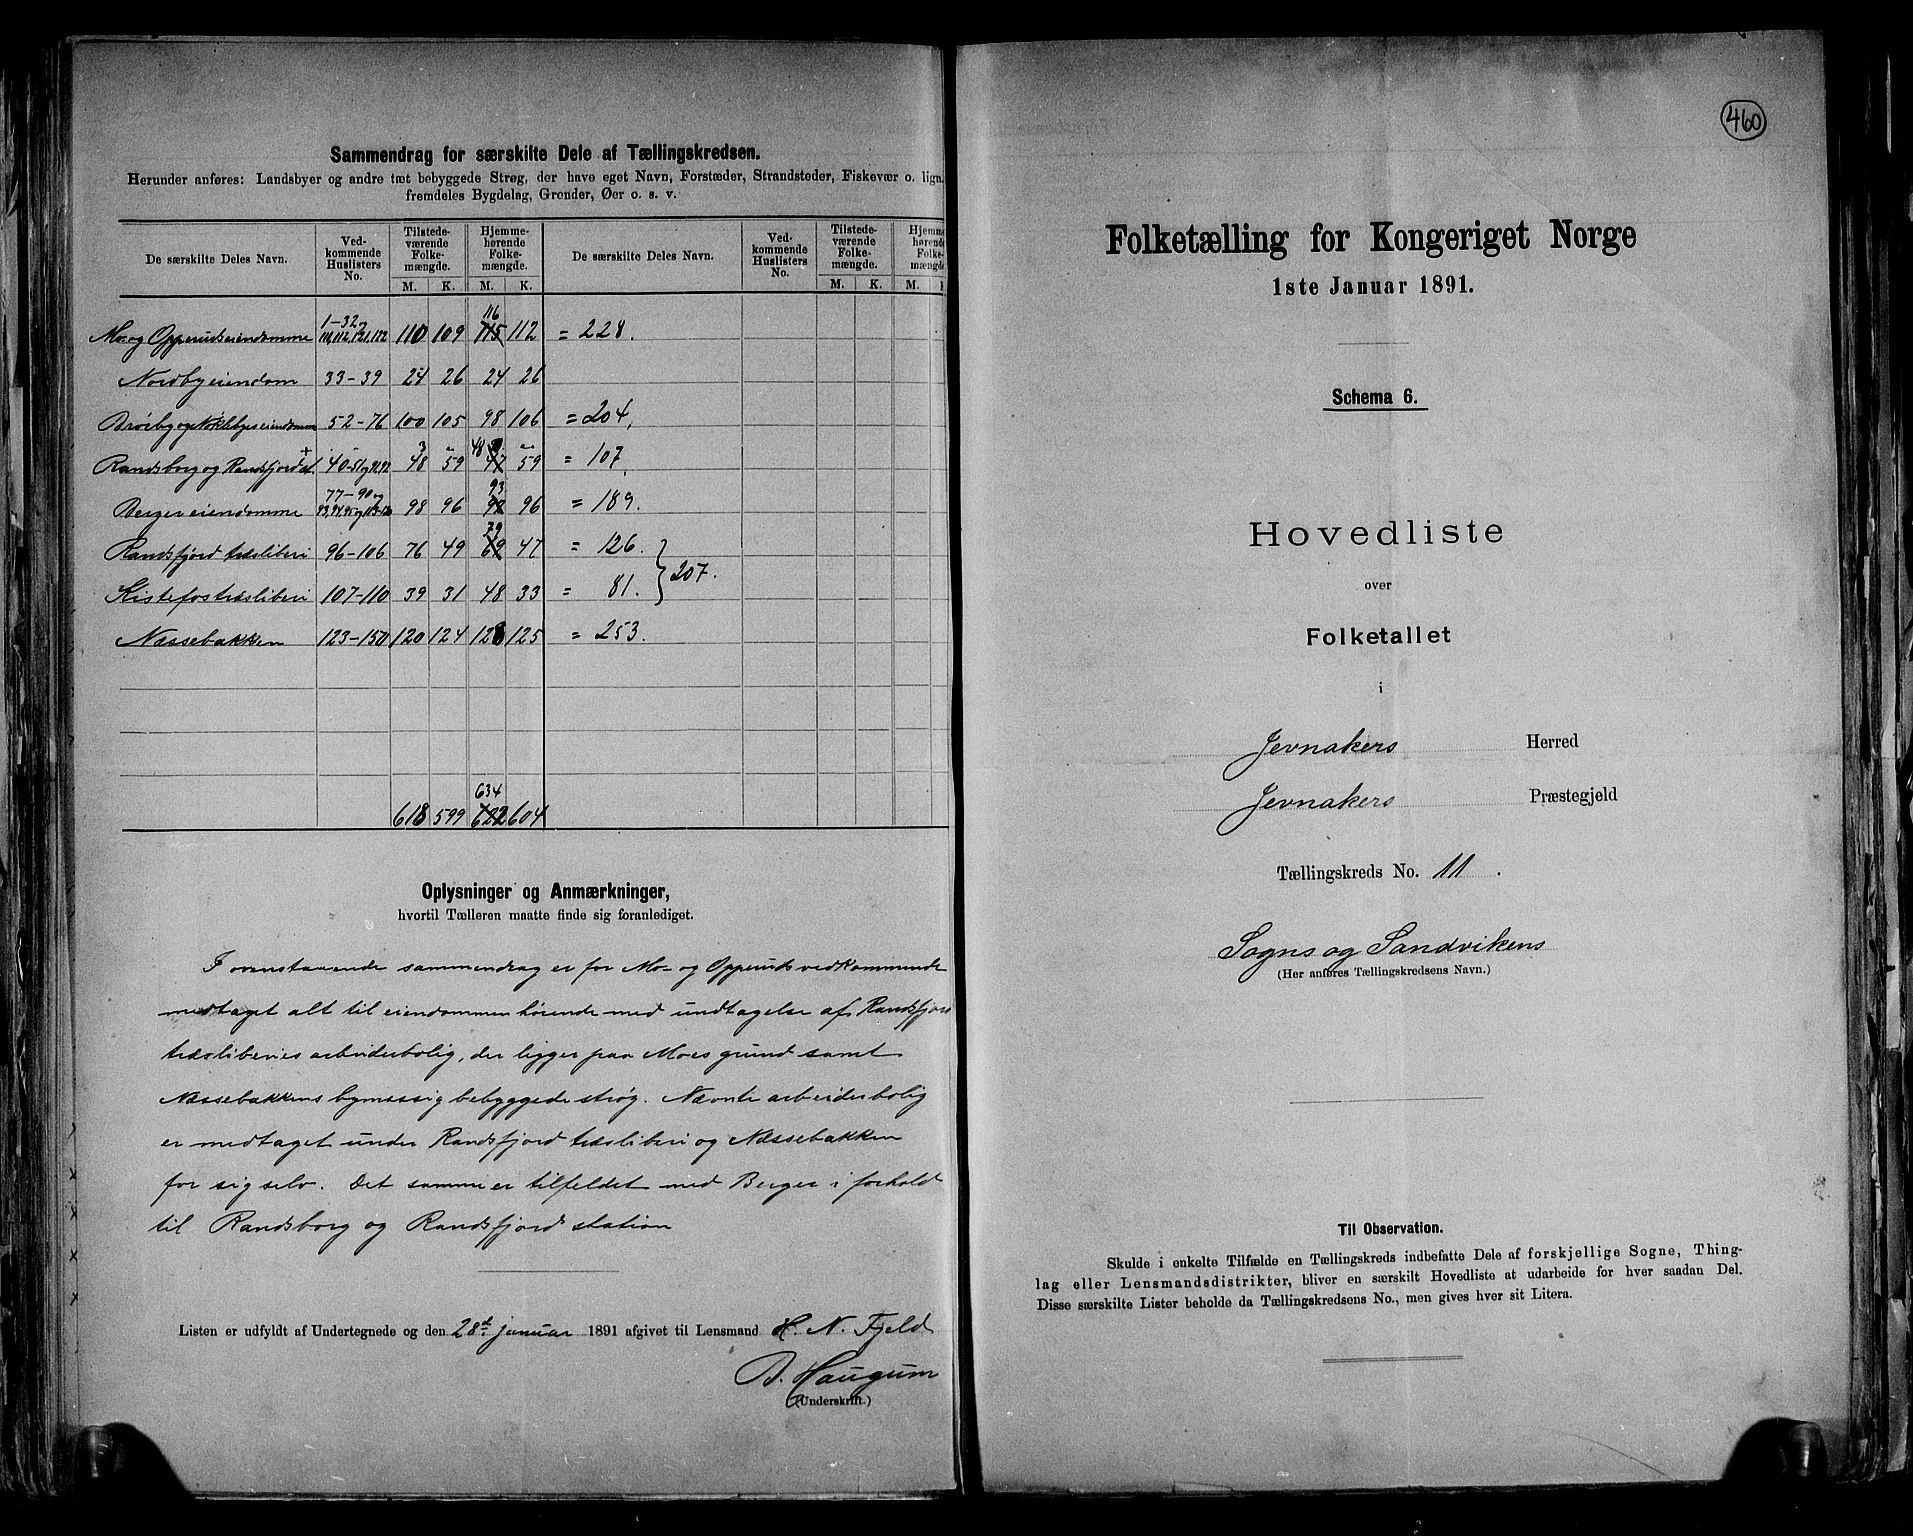 Sammendrag for særskilte Dele af Tællingskredsen.
Herunder anføres: Landsbyer og andre tæt bebyggede Strøg, der have eget Navn, Forstæder, Strandsteder, Fiskevær o. lign.
fremdeles Bygdelag, Grender, Øer o. s. v.
De særskilte Deles Navn. Ved-kommende Huslisters No. Tilstede-værende Folke-mængde. Hjemme-hørende Folke-mængde. De særskilte Deles Navn. Ved-kommende Huslisters No. Tilstede-værende Folke-mængde. Hjemme hørende Folke- mængde
M. K. M. K. M. K. M. K
Mo- og Opperudseiendomme 1-32, 111, 112, 121, 122 110 109 115 116 112 = 228.
Nordbyeiendom 33-39 24 26 24 26
Brørby og Nøklebyeiendomme 52-76 100 105 98 106 = 204,
Randsborg og Randsfjord st. 40-51 og 91, 92 48 59 47 48 59 = 107.
Bergereiendomme 77-90 og 98 96 92 93 96 = 189.
Randsfjord træsliberi 96-106 76 49 69 79 47 = 126.
Kistefos træsliberi 107-110 39 31 48 33 = 81. } 207.
Næssebakken 123-150 120 124 128 125 = 253.
634
618 599 622 604
Oplysninger og Anmærkninger,
hvortil Tælleren maatte finde sig foranlediget.
I ovenstaaende sammendrag er for Mo- og Opperuds vedkommende
medtaget alt til eiendommen hørende med undtagelse af Randsfjord
træsliberies arbeiderbolig, der ligger paa Moes grund samt
Næssebakkens bymæssig bebyggede strøg. Nævnte arbeiderbolig
er medtaget under Randsfjord træsliberi og Næssebakken
for sig selv. Det samme er tilfeldet med Berger i forhold
til Randsborg og Randsfjord station
Listen er udfyldt af Undertegnede og den 28de januar 1891 afgivet til Lensmand H. N. Fjeld
Haugum
(Underskrift.)
460
Folketælling for Kongeriget Norge
1ste Januar 1891.
Schema 6.
Hovedliste
over
Folketallet
i
Jevnakers Herred
Jevnakers Præstegjeld
Tællingskreds No. 11.
Sogns og Sandvikens
(Her anføres Tællingskredsens Navn.)
Til Observation.
Skulde i enkelte Tilfælde en Tællingskreds indbefatte Dele af forskjellige Sogne, Thing-
lag eller Lensmandsdistrikter, bliver en særskilt Hovedliste at udarbeide for hver saadan Del.
Disse særskilte Lister beholde da Tællingskredsens No., men gives hver sit Litera.